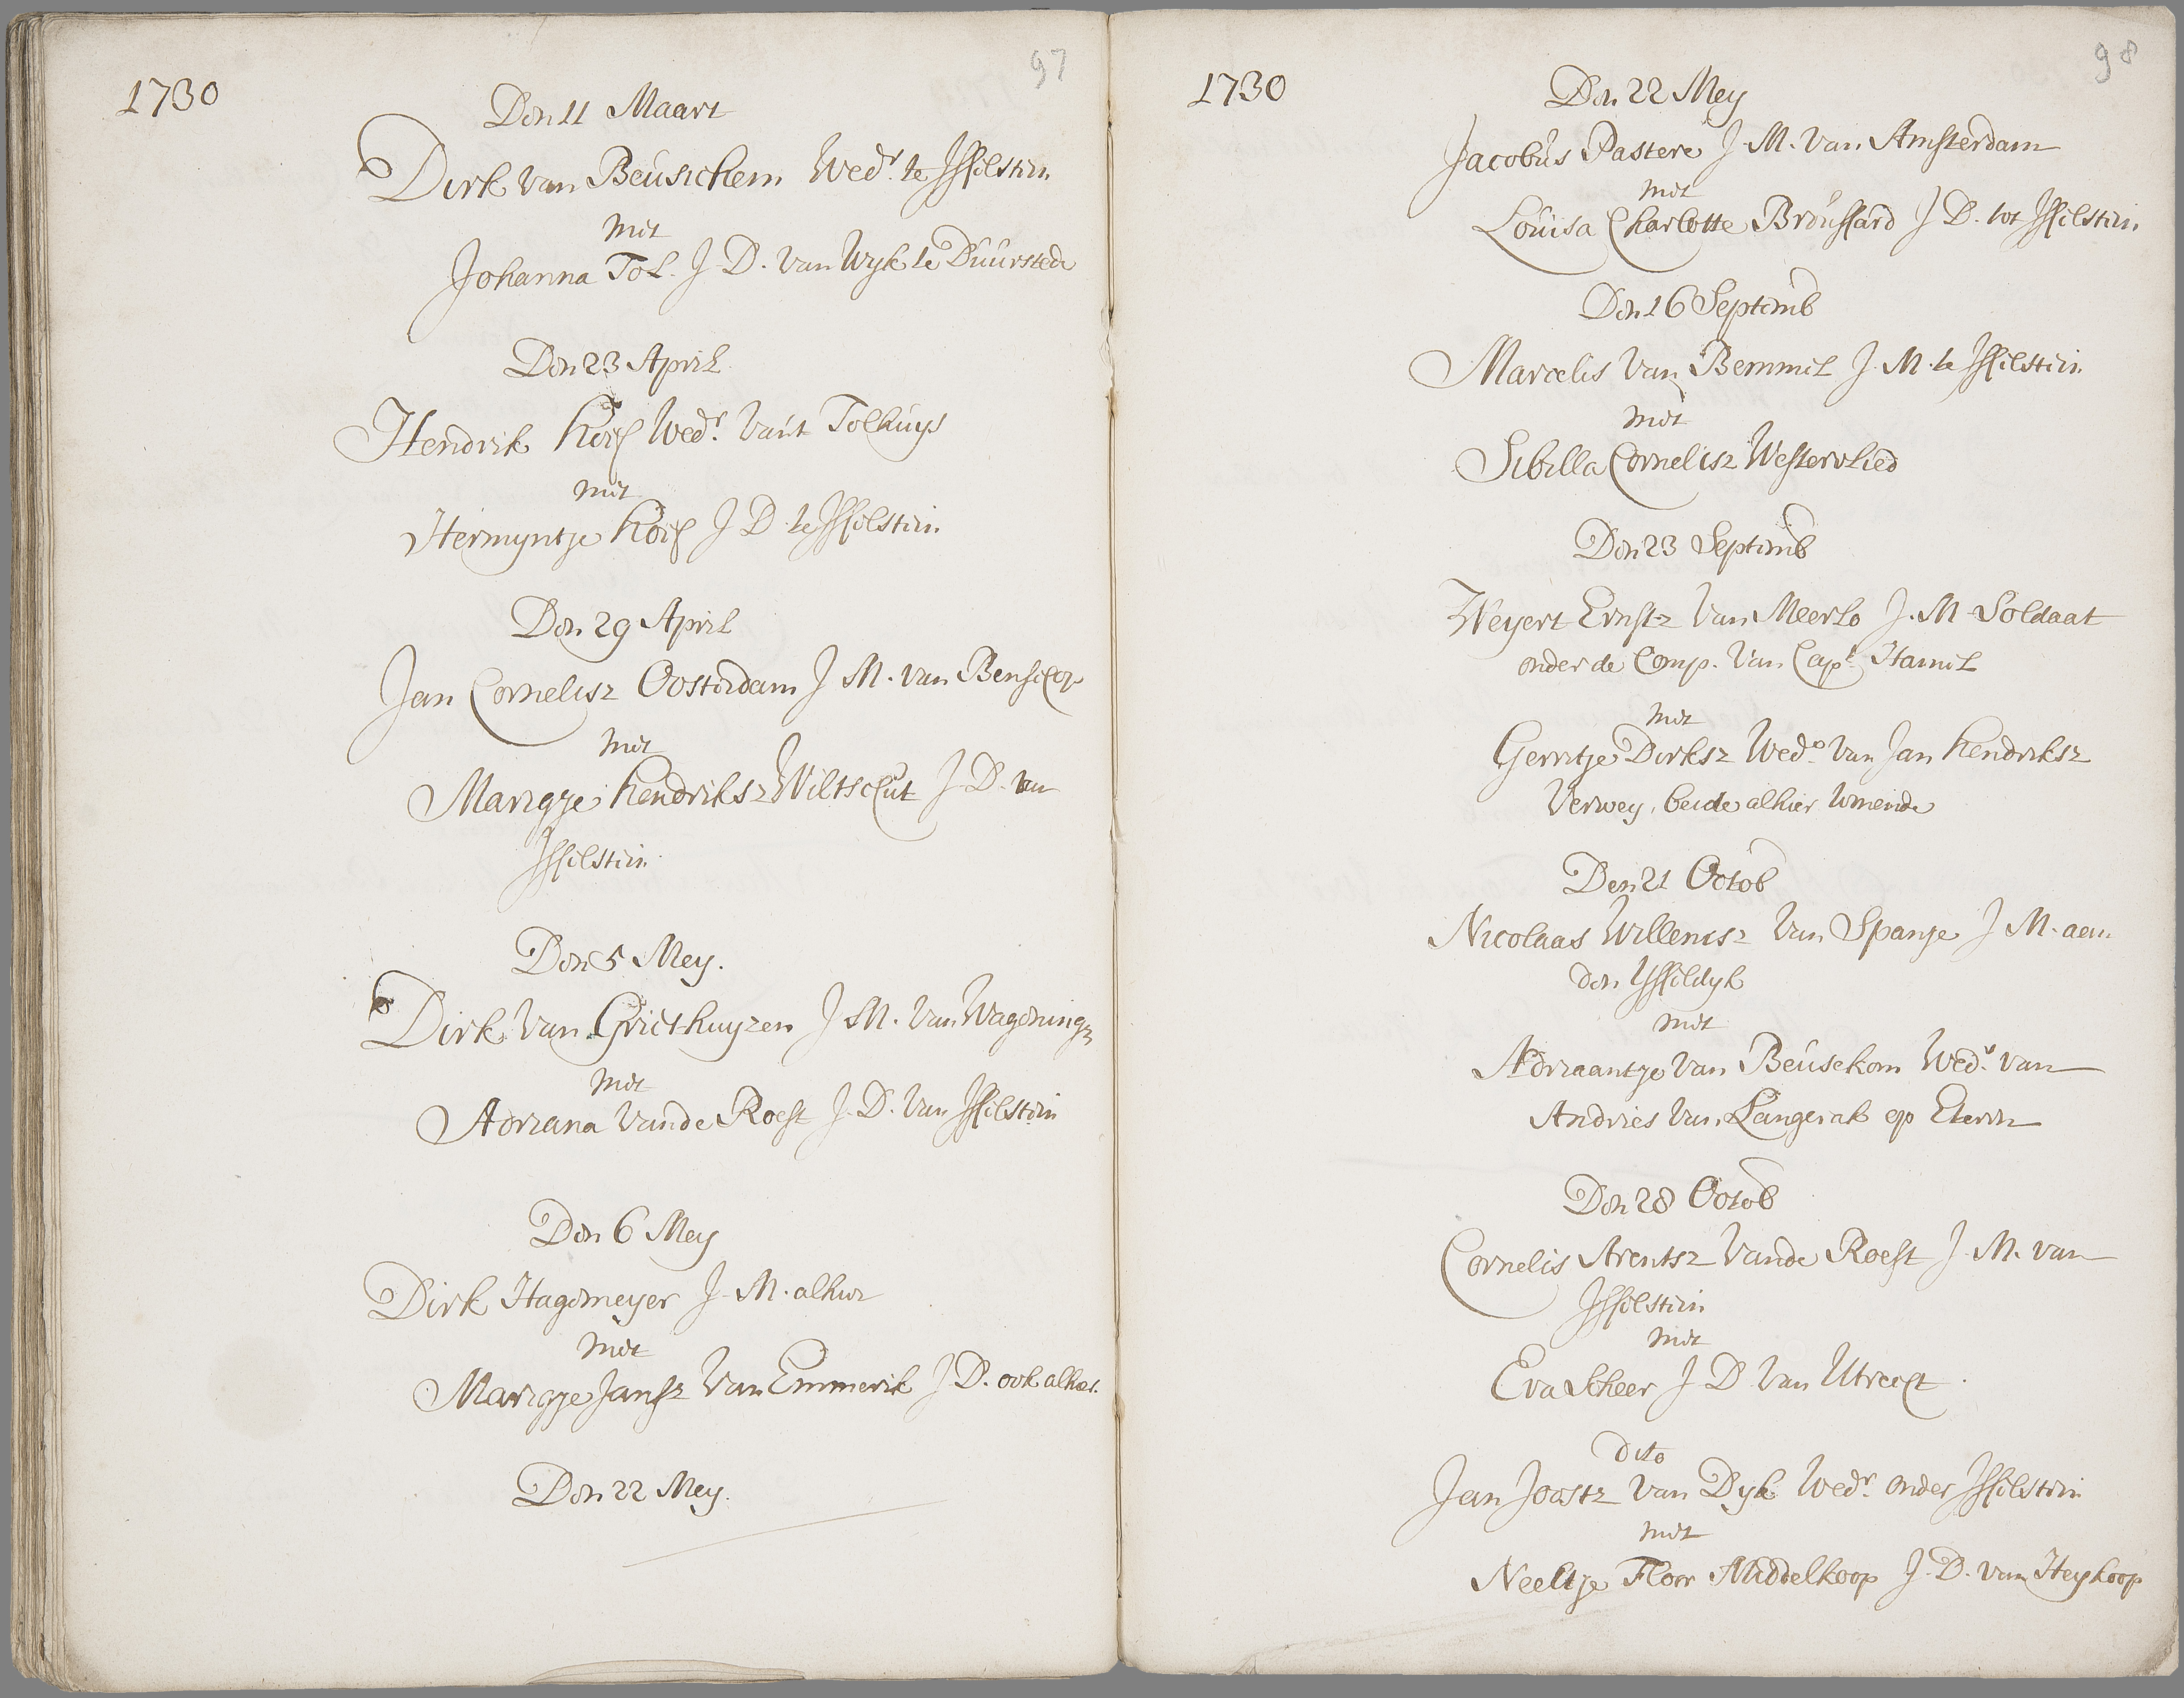 97
1730
Den 11 Maart
Dirk van Beusichem Wedr. te Ysselstein
met
Johanna Tol. J. D. van Wyk te Duurstede
Den 23 April
Hendrik Wedr. van't Tolhuys
met
Hermyntje J D te Ysselstein
Den 29 April
Jan Cornelisz Oosterdam J M. van Benschop
met
Marigje Hendriksz Wiltschut J. D. van
Ysselstein.
Den 5 Mey.
Dirk van Griethuyzen J M. van Wagening
met
Adriana vande Roest J. D. van Ysselstein
Den 6 Mey
Dirk Hagemeyer J. M. alhier
met
Marigje Jansz van Emmerik J D. ook alhier.
Den 22 Mey.
98
1730
Den 22 Mey
Jacobus Pastere J. M. van Amsterdam
met
Louisa Charlotte Broussard J D. tot Ysselstein
Den 16 Septemb
Marcelis van Bemmel J. M. te Ysselstein
met
Sibilla Cornelisz Westervlied
Den 23 Septemb
Weyert Ernstz van Meerlo J. M Soldaat
onder de Comp. van Capt. Hamel
met
Gerritje Dirksz Wede. van Jan Hendriksz
Verwey, beide alhier woonende
Den 21 Octob
Nicolaas Willemsz van Spanje J M. aan
den Ysseldyk
met
Adriaantje van Beusekom Wede. van
Andries van Langerak op Eteren
Den 28 Octob
Cornelis Arentsz vande Roest J. M. van
Ysselstein
met
Eva Scheer J D van Utrecht.
dito
Jan Joostz van Dyk Wedr. onder Ysselstein
met
Neeltje Floor Middelkoop J. D. van Heykoop